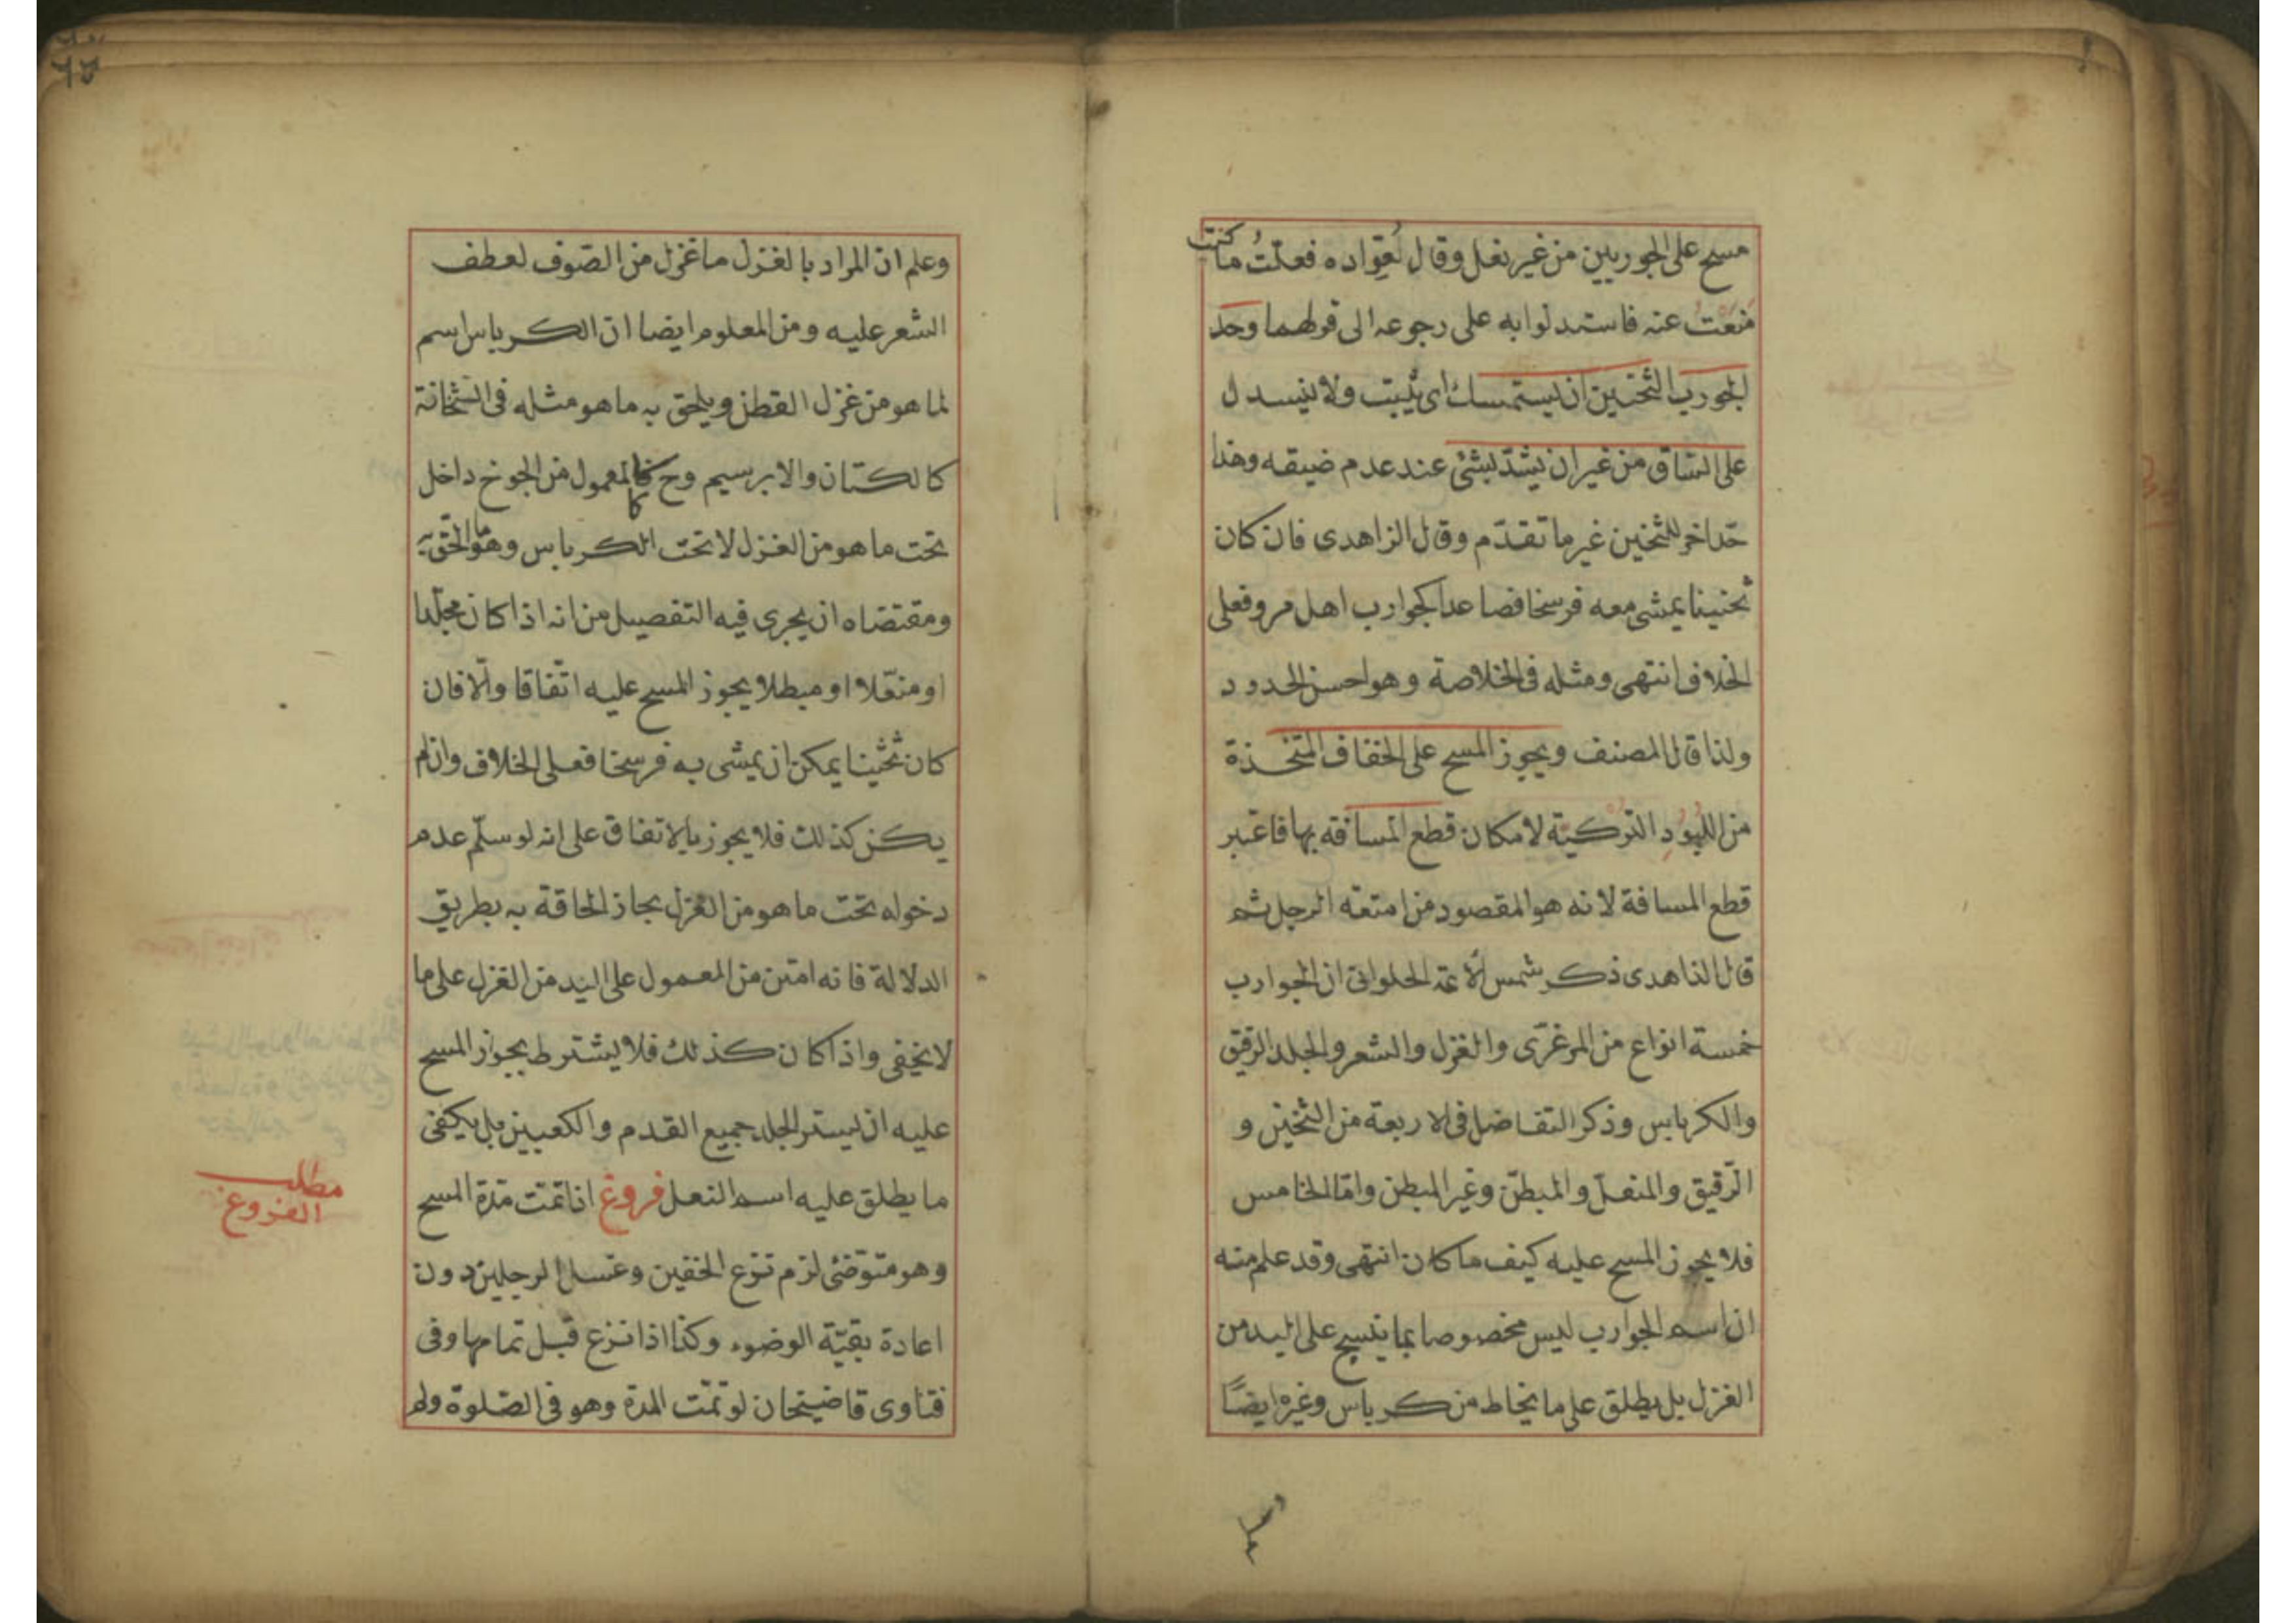 مسح على الجوربين من غير نعل وقال لعواده فعلت ما كنت
منعت عنه فاستدلوا به على رجوعه الى قولهما وحد
الجورب الثخين ان يستمسك اى يثبت ولا ينسدل
على الساق من غير ان يشد بشئ عند عدم ضيقه وهذا
حد اخر للثخين غير ما تقدم وقال الزاهدى فان كان
ثخينا يمشى معه فرسخا فصاعدا كجوارب اهل مرو فعلى
الخلاف انتهى ومثله فى الخلاصة وهو احسن الحدود
ولذا قال المصنف ويجوز المسح على الخفاف المتخذة
من اللبود التركية لامكان قطع المسافة بها فاعتبر
قطع المسافة لانه هو المقصود من امتعة الرجل ثم
قال الذاهدى ذكر شمس الأئمة الحلوانى ان الجوارب
خمسة انواع من المرغزى والغزل والشعر والجلد الرقيق
والكرباس وذكر التفاضل فى الاربعة من الثخين و
الرقيق والمنعل والمبطن وغير المبطن واما الخامس
فلا يجوز المسح عليه كيف ما كان انتهى وقد علم منه
ان اسم الجوارب ليس مخصوصا بما ينسج على اليد من
الغزل بل يطلق على ما يخاط من كرباس وغيره ايضًا
وعلم ان المراد بالغزل ما غزل من الصوف لعطف
الشعر عليه ومن المعلوم ايضا ان الكرباس اسم
لما هو من غزل القطن ويلحق به ما هو مثله فى الثخانة
كالكتان والابرسيم وح فالمعمول من الجوخ داخل
تحت ما هو من الغزل لا تحت الكرباس وهو ما الحق به
ومقتضاه ان يجرى فيه التفصيل من انه اذا كان مجلدا
او منعلا او مبطلا يجوز المسح عليه اتفاقا والا فان
كان ثخينا يمكن ان يمشى به فرسخا فعلى الخلاف وان لم
يكن كذلك فلا يجوز بالاتفاق على انه لو سلم عدم
دخوله تحت ما هو من الغزل بجاز الحاقة به بطريق
الدلالة فانه امتن من المعمول على اليد من الغزل على ما
لا يخفى واذا كان كذلك فلا يشترط بجواز المسح
عليه ان يستر الجلد جميع القدم والكعبين بل يكفى
ما يطلق عليه اسم النعل فروغ اذا تمت مدة المسح
وهو متوضئ لزم نزع الخفين وغسل الرجلين دون
اعادة بقية الوضوء وكذا اذا نزع قبل تمامها وفى
فتاوى قاضيخان لو تمت المدة وهو فى الصلوة ولم
مطلب
الفروغ